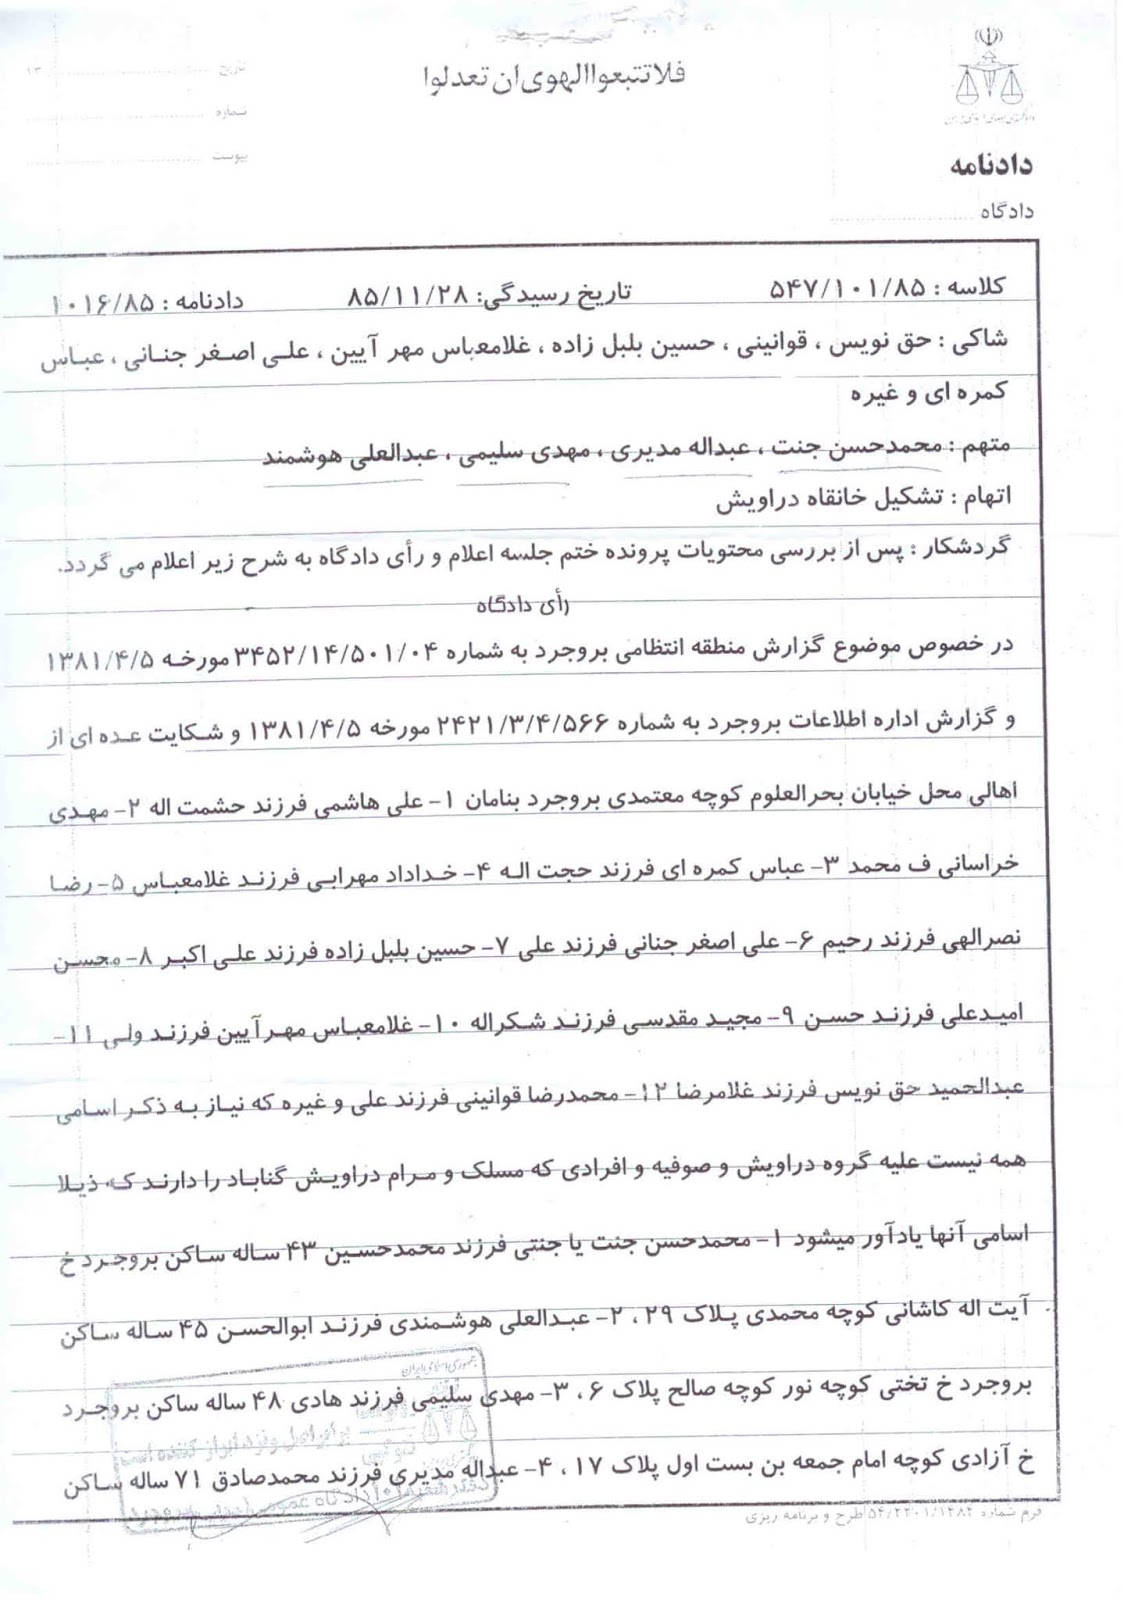 فلا تتبعوا الهوی ان تعدلوا
تاریخ ۱۳
شماره
پیوست
دادنامه
دادگاه
کلاسه : ۵۴۷/۱۰۱/۸۵ تاریخ رسیدگی: ۸۵/۱۱/۲۸ دادنامه : ۱۰۱۶/۸۵
شاکی : حق نویس ، قوانینی ، حسین بلبل زاده ، غلامعباس مهر آیین ، علی اصغر جنانی ، عباس
کمره ای و غیره
متهم : محمدحسن جنت ، عبداله مدیری ، مهدی سلیمی ، عبدالعلی هوشمند
اتهام : تشکیل خانقاه دراویش
گردشکار : پس از بررسی محتویات پرونده ختم جلسه اعلام و رأی دادگاه به شرح زیر اعلام می گردد.
رأی دادگاه
در خصوص موضوع گزارش منطقه انتظامی بروجرد به شماره ۳۴۵۲/۱۴/۵۰۱/۰۴ مورخه ۱۳۸۱/۴/۵
و گزارش اداره اطلاعات بروجرد به شماره ۲۴۲۱/۳/۴/۵۶۶ مورخه ۱۳۸۱/۴/۵ و شکایت عده ای از
اهالی محل خیابان بحرالعلوم کوچه معتمدی بروجرد بنامان ۱- علی هاشمی فرزند حشمت اله ۲- مهدی
خراسانی ف محمد ۳- عباس کمره ای فرزند حجت اله ۴- خداداد مهرابی فرزند غلامعباس ۵- رضا
نصرالهی فرزند رحیم ۶- علی اصغر جنانی فرزند علی ۷- حسین بلبل زاده فرزند علی اکبر ۸- محسن
امیدعلی فرزند حسن ۹- مجید مقدسی فرزند شکراله ۱۰- غلامعباس مهرآیین فرزند ولی ۱۱-
عبدالحمید حق نویس فرزند غلامرضا ۱۲- محمدرضا قوانینی فرزند علی و غیره که نیاز به ذکر اسامی
همه نیست علیه گروه دراویش و صوفیه و افرادی که مسلک و مرام دراویش گناباد را دارند که ذیلا
اسامی آنها یادآور میشود ۱- محمدحسن جنت یا جنتی فرزند محمدحسین ۴۳ ساله ساکن بروجرد خ
آیت اله کاشانی کوچه محمدی پلاک ۲۹ ، ۲- عبدالعلی هوشمندی فرزند ابوالحسن ۴۵ ساله ساکن
بروجرد خ تختی کوچه نور کوچه صالح پلاک ۶ ، ۳- مهدی سلیمی فرزند هادی ۴۸ ساله ساکن بروجرد
خ آزادی کوچه امام جمعه بن بست اول پلاک ۱۷ ، ۴- عبداله مدیری فرزند محمدصادق ۷۱ ساله ساکن
جمهوری اسلامی ایران
برابر اصل و نزد ابراز کننده است
فرم شماره ۵۴/۲۲۰۱/۱۲۸۲ طرح و برنامه ریزی